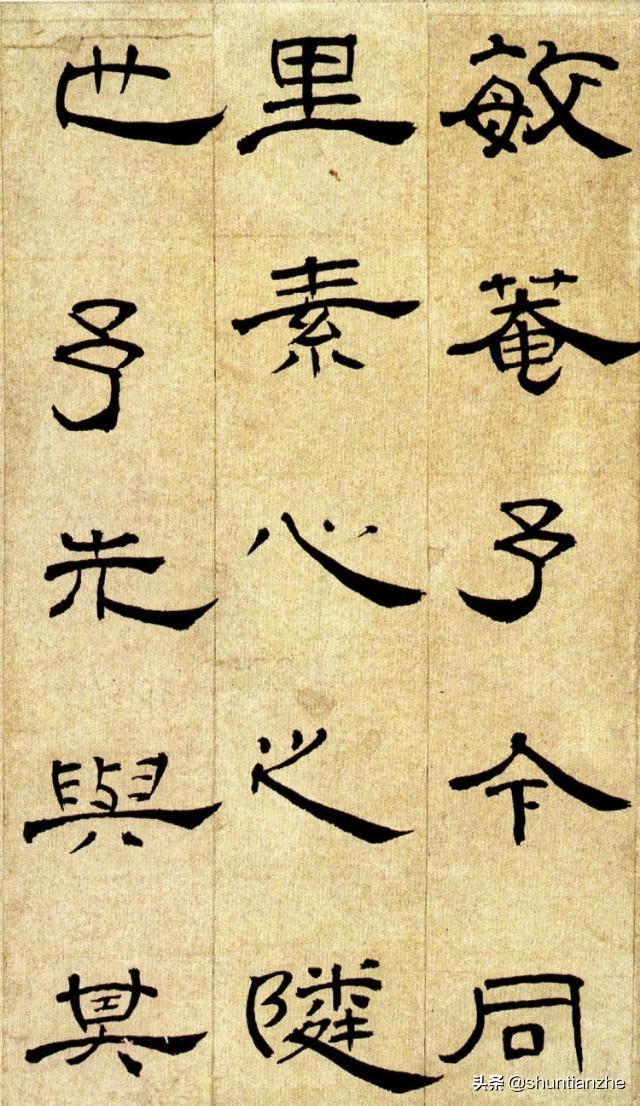 敏菴予今同
里素心之隣
也予先與其
头条 @shuntianzhe